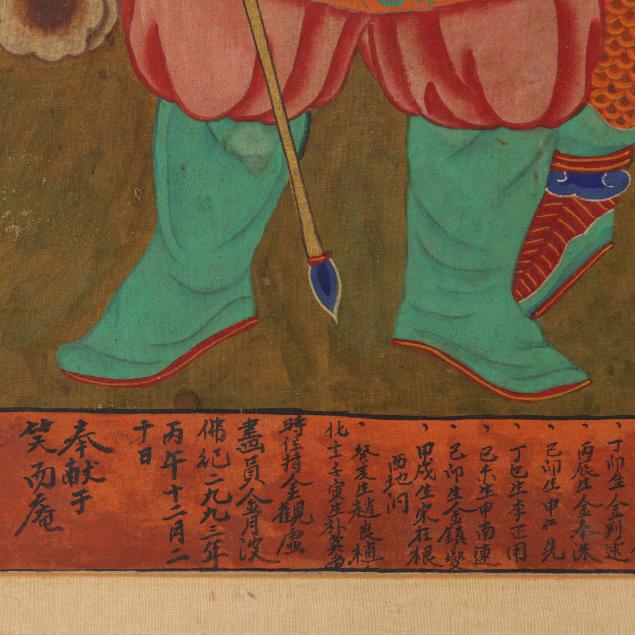 丁卯生金判述
丙辰生金奉洙
己卯生申仁先
丁巳生李正用
己未生申南連
己卯生金鎮燮
甲戌生宋在根
西池洞
癸亥生趙良植
化主壬寅生朴英
時住持金觀虛
畵員金月波
佛紀二九九三年
丙午十二月二
十日
奉献于
笑而庵